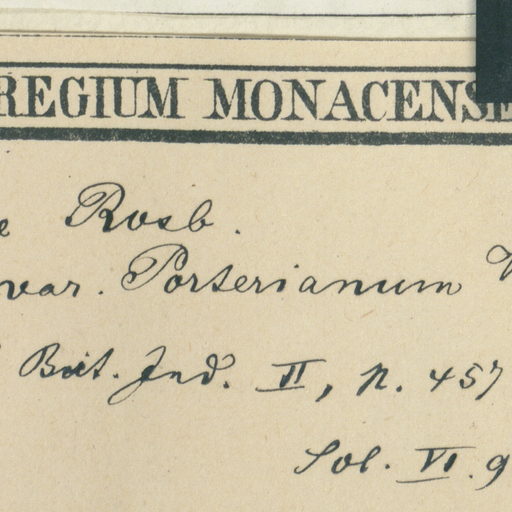 REGIUM MONACENSE
e Roxb.
var. Porterianum
Brit. Ind. II, p. 457
Sol. VI. 9